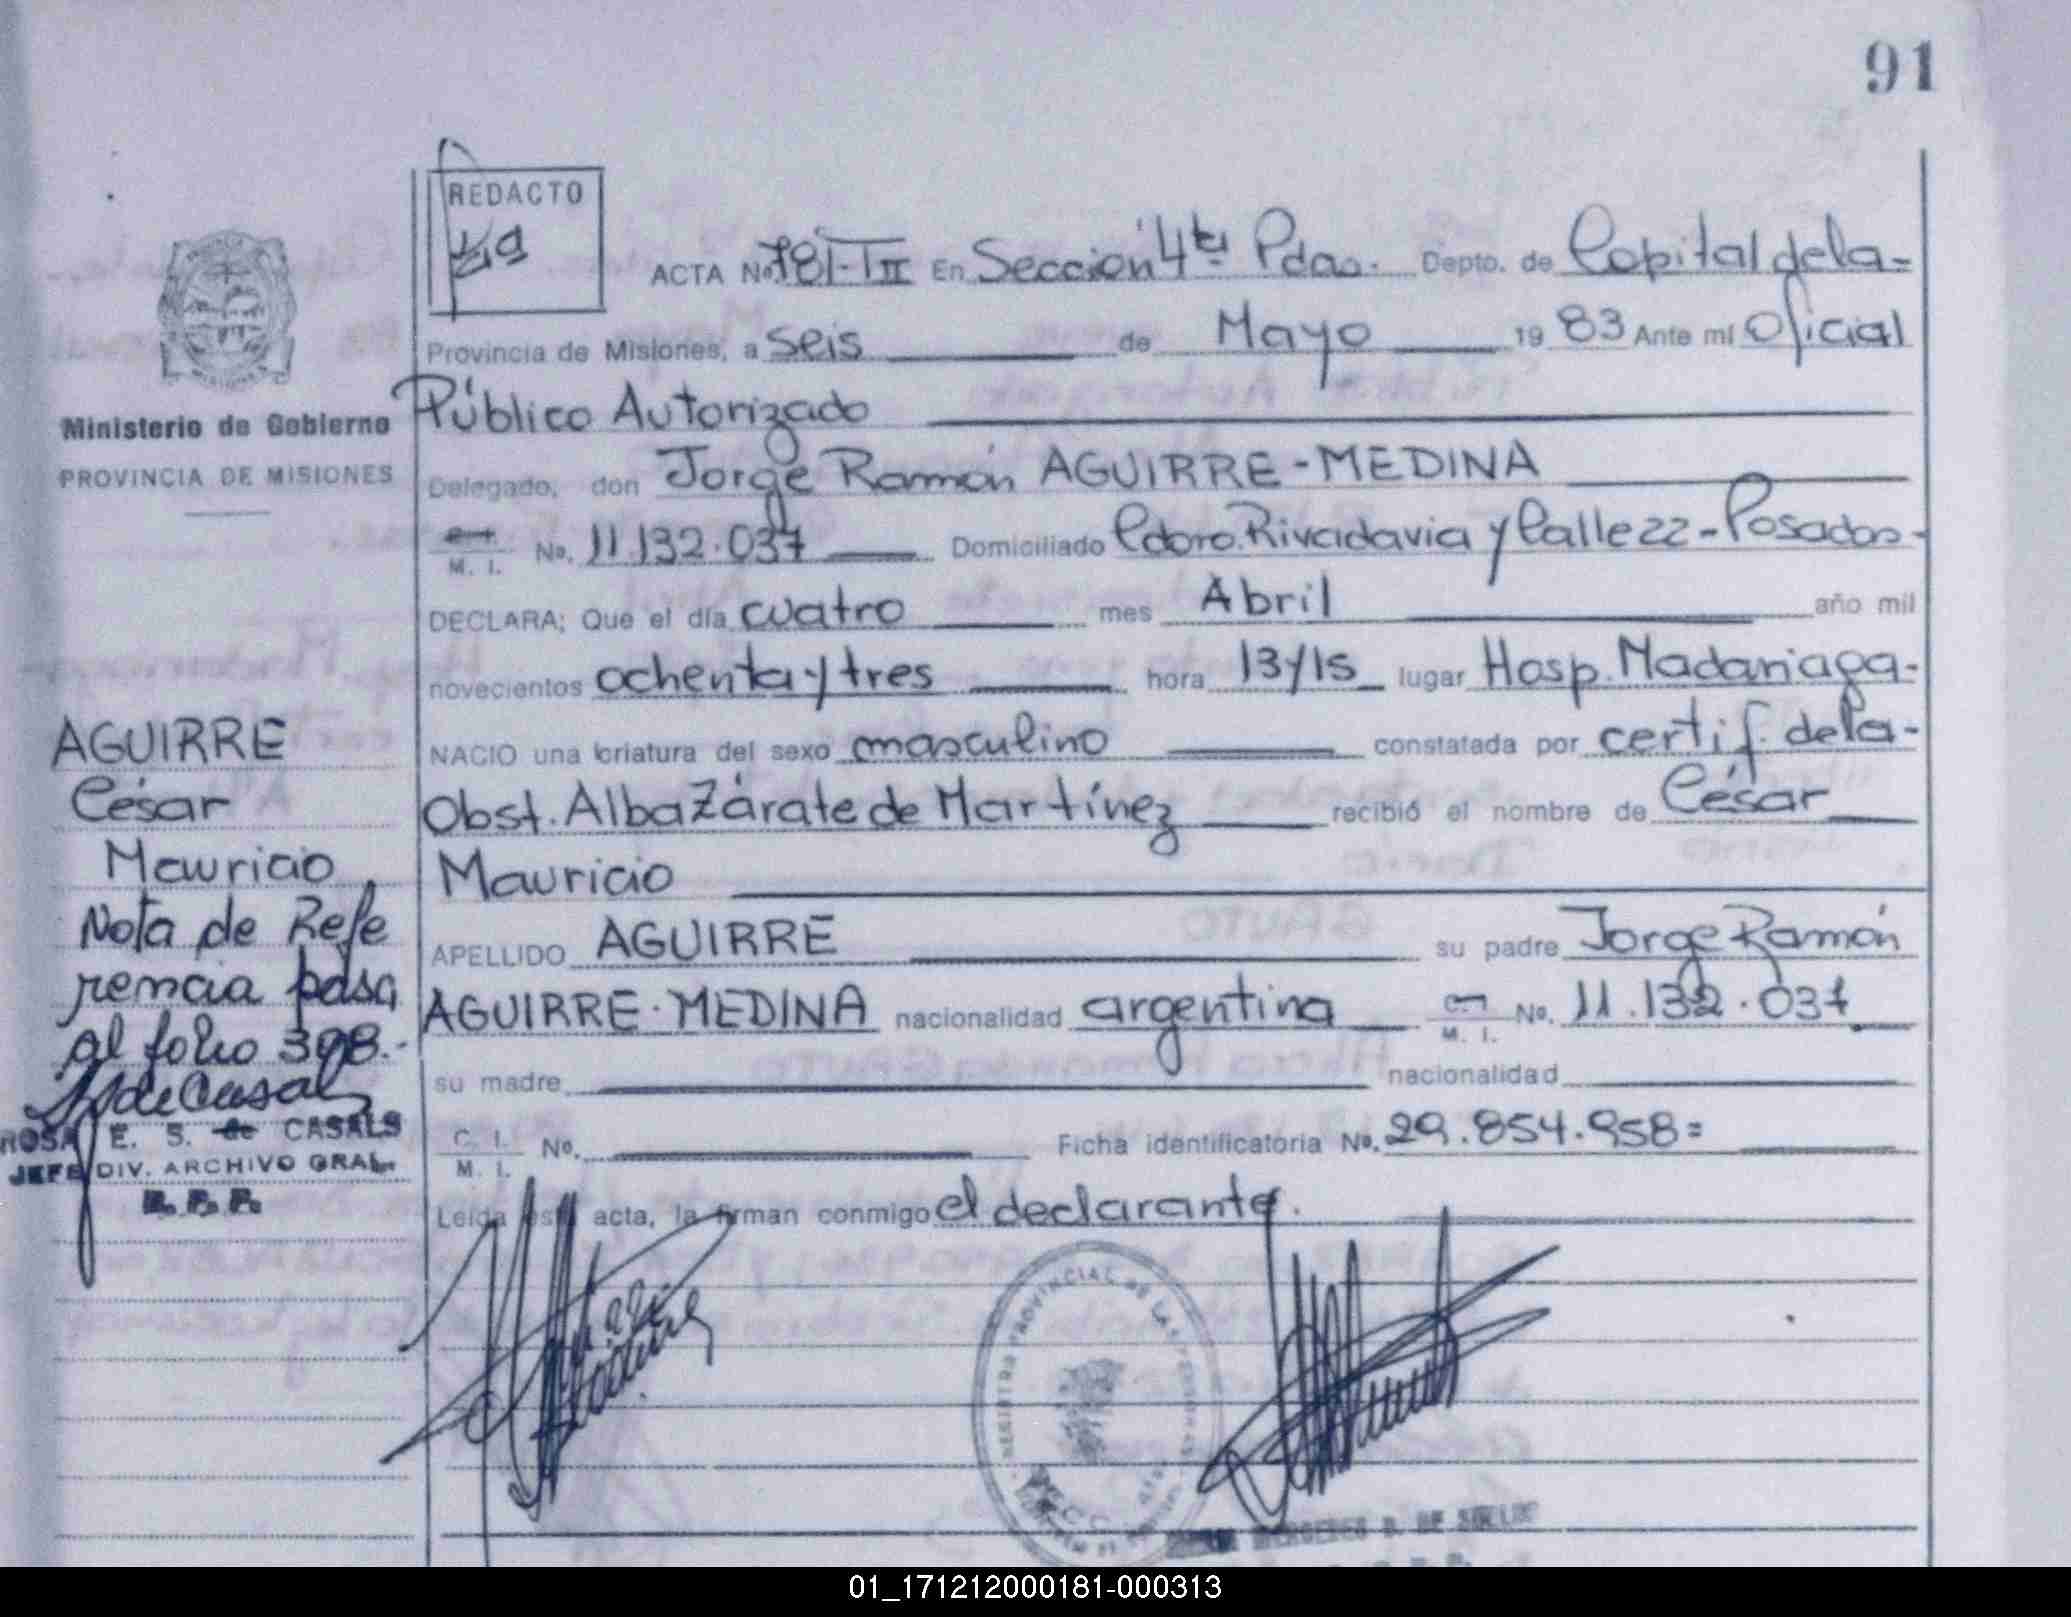 91
REDACTO
ACTA No. 781-T II En Sección 4ta Pdas. Depto. de Capital de la-
Provincia de Misiones, a seis de Mayo 19 83 Ante mí Oficial
Ministerio de Gobierno
PROVINCIA DE MISIONES
Público Autorizado
Delegado, don Jorge Ramón AGUIRRE-MEDINA
M. I. No. 11.132.037 Domiciliado Cdoro. Rivadavia y Calle 22-Posadas-
DECLARA; Que el día cuatro mes Abril año mil
novecientos ochenta y tres hora 13y15 lugar Hosp. Madariaga-
NACIO una criatura del sexo masculino constatada por certif. de la-
Obst. Alba Zárate de Martínez recibió el nombre de César
Mauricio
APELLIDO AGUIRRE su padre Jorge Ramón
AGUIRRE-MEDINA nacionalidad argentina C. I. M. I. No. 11.132.037
su madre nacionalidad
C. I. M. I. No. Ficha identificatoria No. 29.854.958=
Leída esta acta, la firman conmigo el declarante.
AGUIRRE
César
Mauricio
Nota de Refe
rencia pasa
al folio 398.-
ROSA E. S. de CASALS
JEFE DIV. ARCHIVO GRAL.
R. P. P.
REGISTRO PROVINCIAL DE LAS PERSONAS
01_171212000181-000313